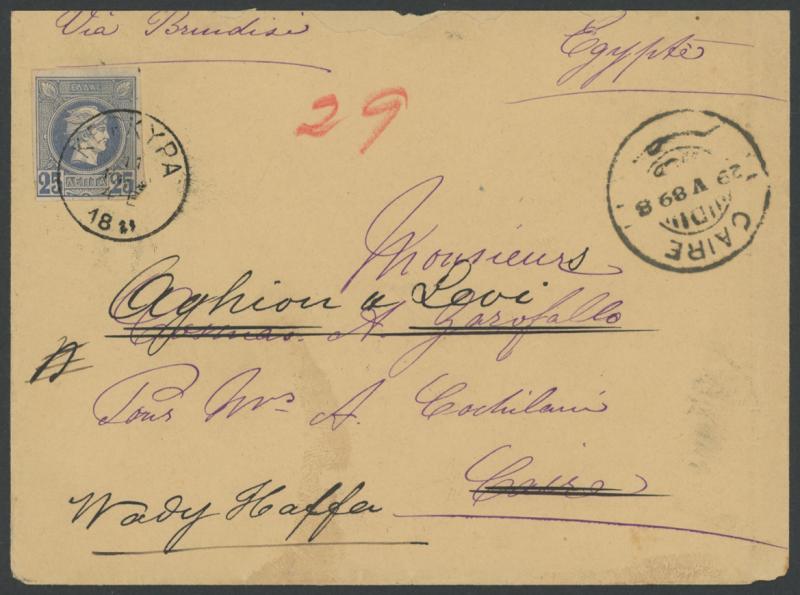 Via Brindisi
Egypte
ΕΛΛΑΣ
25 ΛΕΠΤΑ 25
ΚΕΡΚΥΡΑ
18
29
CAIRE
29 V 89 8
Monsieurs
Aghion & Levi
Cosmas. A. Garofallo
Pour Mrs A. Cochilani
Caire
Wady Halfa